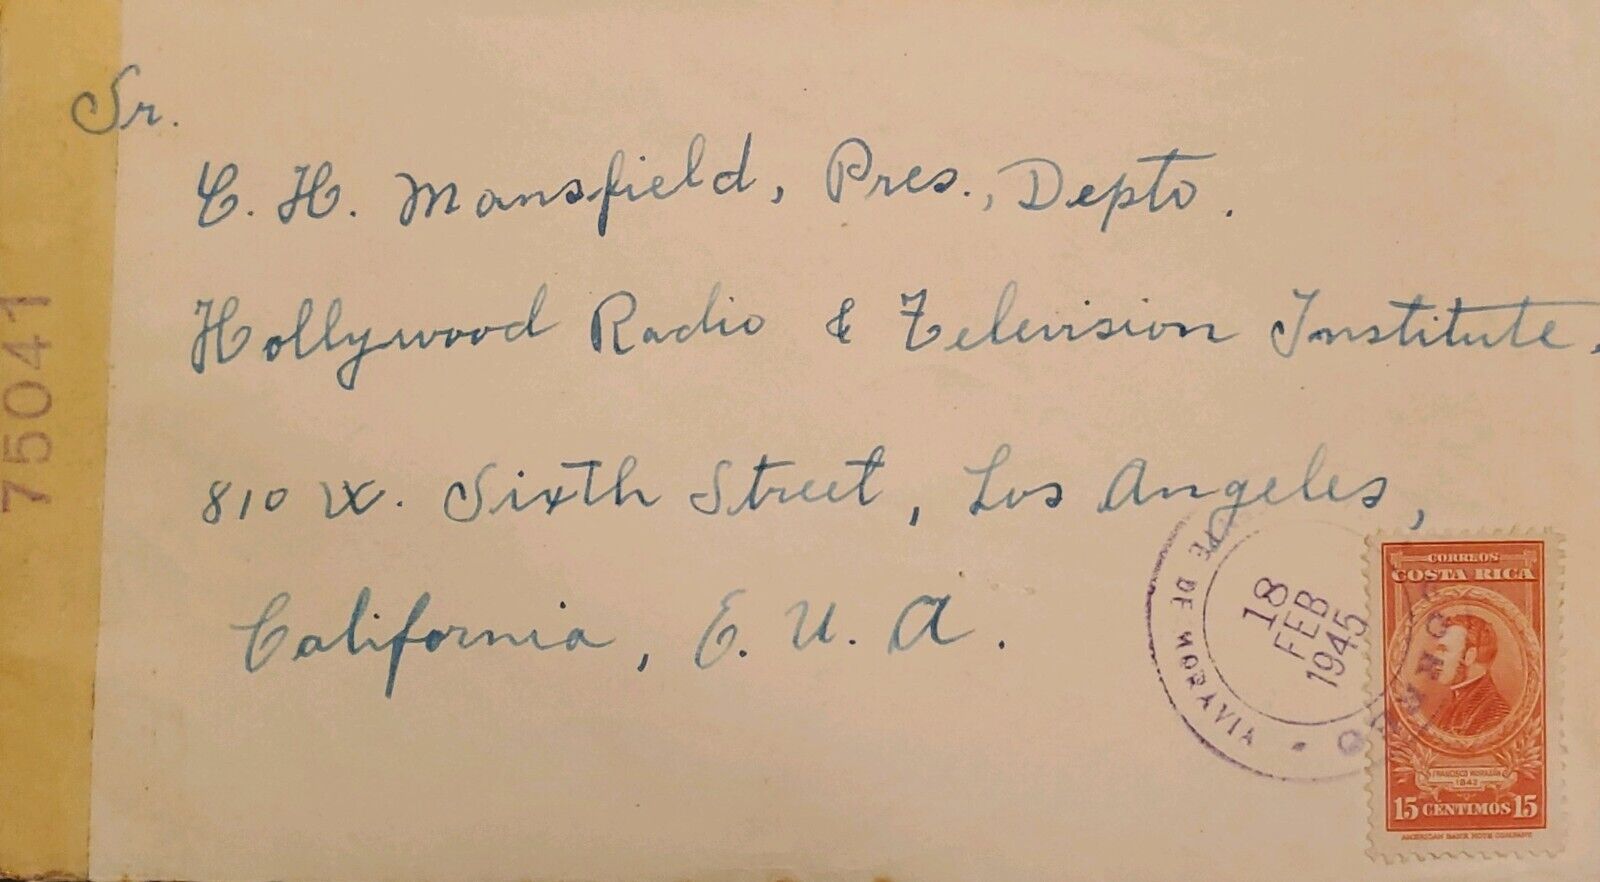 Sr.
C. H. Mansfield, Pres., Depto.
Hollywood Radio & Television Institute.
810 W. Sixth Street, Los Angeles,
California, E. U. A.
75041
DE MORAVIA
CORREO
18
FEB
1945
CORREOS
COSTA RICA
FRANCISCO MORAZAN
1842
15 CENTIMOS 15
AMERICAN BANK NOTE COMPANY